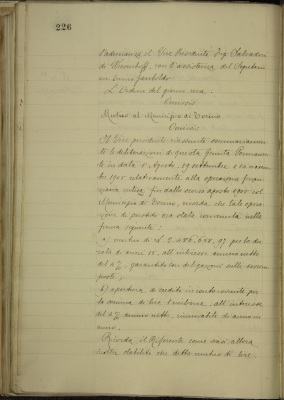 226
l'adunanza il Vice Presidente Ing. Salvadori
di Wiesenhoff, con l'assistenza del Segretario
L'Ordine del giorno reca:
Omissis
Mutuo al Municipio di Torino
Omissis
Il Vice presidente riassume sommariamente
le deliberazioni di questa Giunta Permanen-
te in data 8 Agosto, 19 settembre e 20 novem-
bre 1905 relativamente alla operazione finan-
ziaria intesa fin dallo scorso agosto 1905 col
Municipio di Torino, ricorda che tale opera-
zione di prestito era stata convenuta nella
forma seguente:
a) mutuo di L. 2.486.658,97 per la du-
rata di anni 15, all'interesse annuo netto
del 4%, garantito con delegazioni sulle sovrim-
poste;
b) apertura di credito in conto corrente per
la somma di lire 1 milione, all'interesse
del 4% annuo netto, rinnovabile di anno in
anno.
Ricorda, il Riferente come sia allora
stabilito che detto mutuo di lire